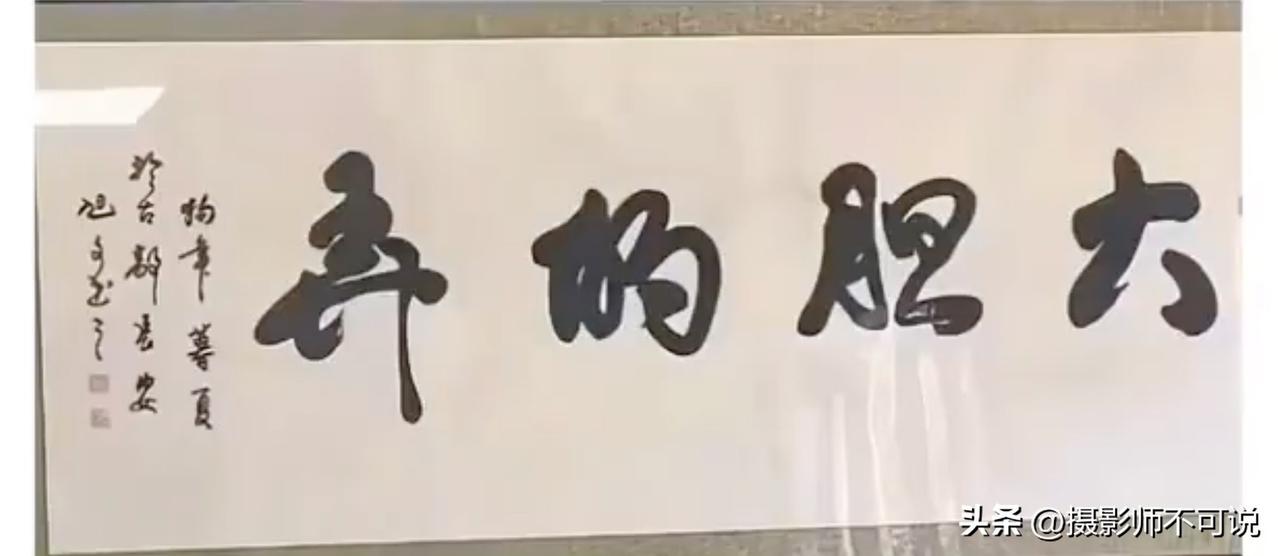 大胆的弄
狗年暮夏
於古都長安
旭文书之
头条 @摄影师不可说